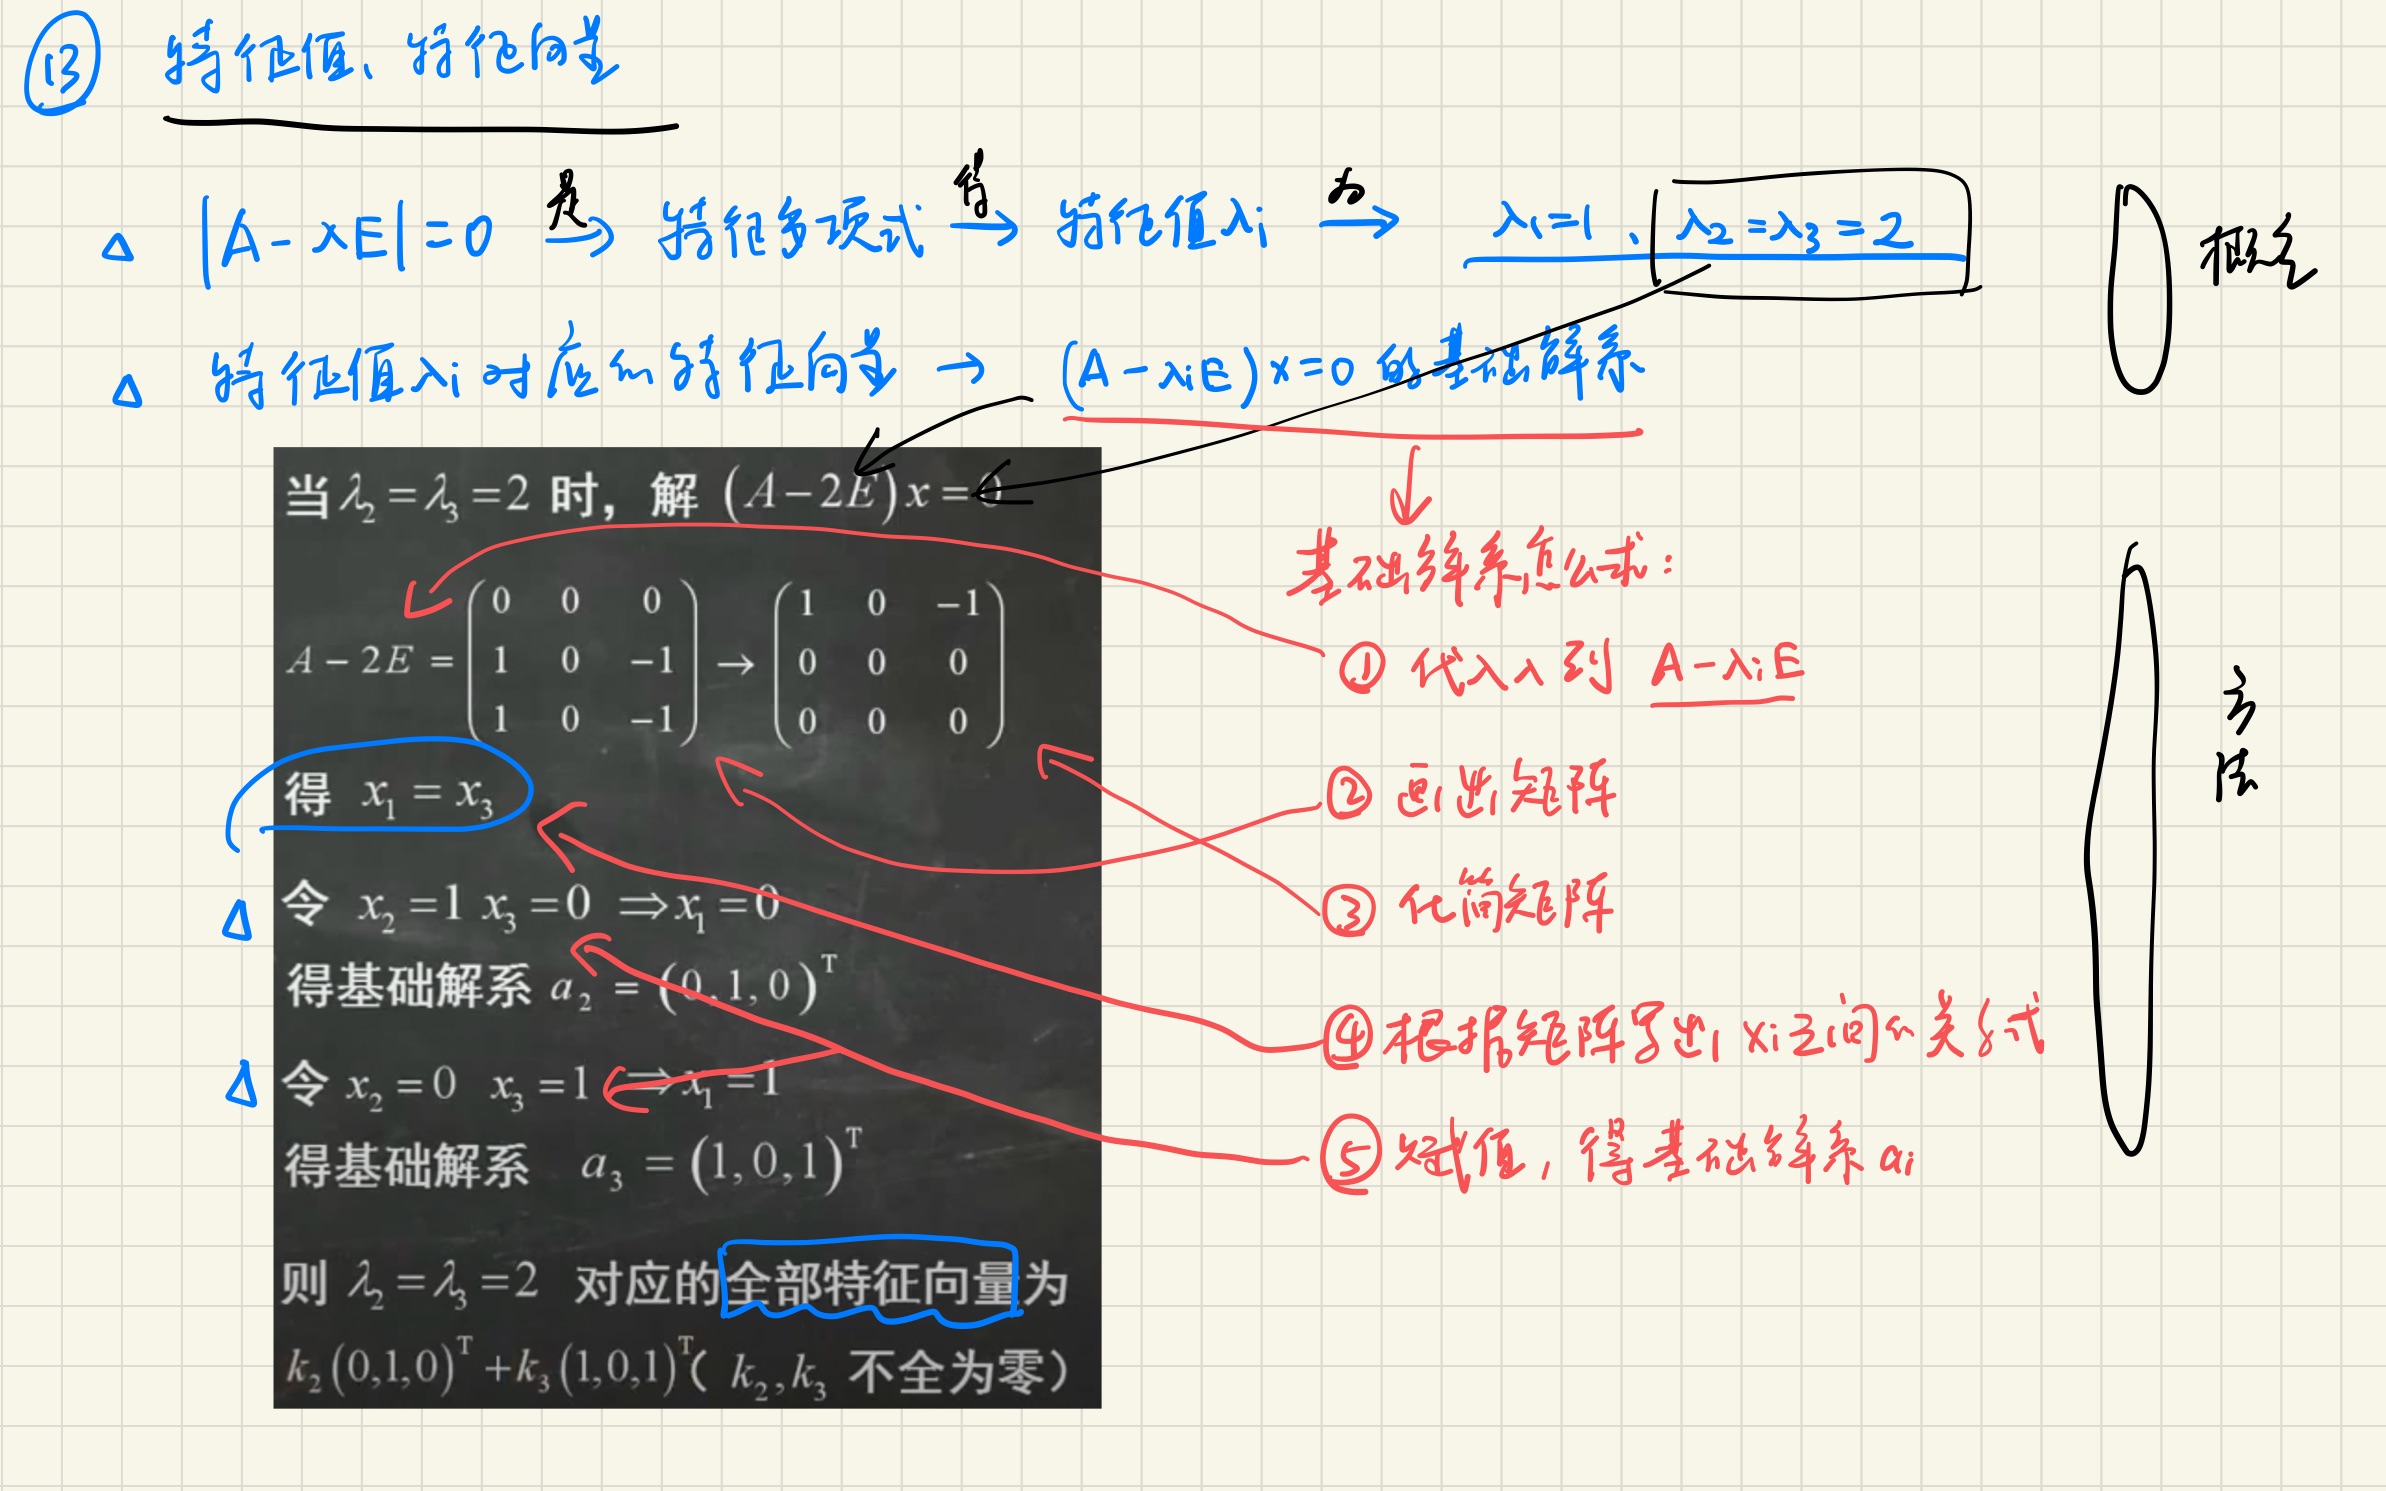 ⑬ 特征值、特征向量
△ |A-λE|=0 是→ 特征多项式 得→ 特征值λi 为→ λ1=1、λ2=λ3=2
概念
△ 特征值λi对应的特征向量 → (A-λiE)x=0 的基础解系
当 λ2=λ3=2 时，解 (A-2E)x=0
A-2E = (0 0 0; 1 0 -1; 1 0 -1) → (1 0 -1; 0 0 0; 0 0 0)
得 x1 = x3
△ 令 x2=1 x3=0 ⇒x1=0
得基础解系 a2 = (0,1,0)^T
△ 令 x2=0 x3=1 ⇒x1=1
得基础解系 a3 = (1,0,1)^T
则 λ2=λ3=2 对应的全部特征向量为
k2(0,1,0)^T+k3(1,0,1)^T( k2,k3 不全为零)
基础解系怎么求：
① 代入λ到 A-λiE
② 画出矩阵
③ 化简矩阵
④ 根据矩阵写出 xi之间的关系式
⑤ 赋值，得基础解系 ai
方法